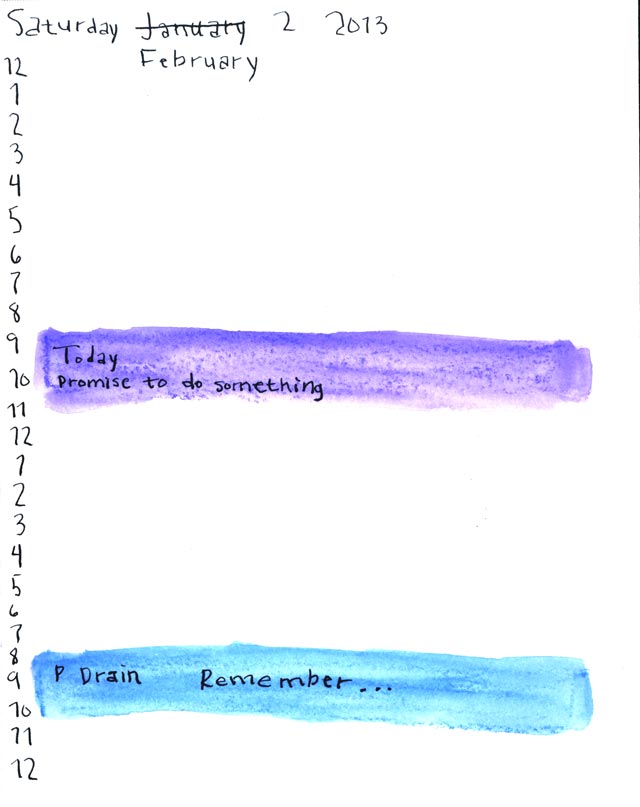 Saturday January 2 2013
February
12
1
2
3
4
5
6
7
8
9
Today
10
promise to do something
11
12
1
2
3
4
5
6
7
8
9
P Drain Remember...
10
11
12